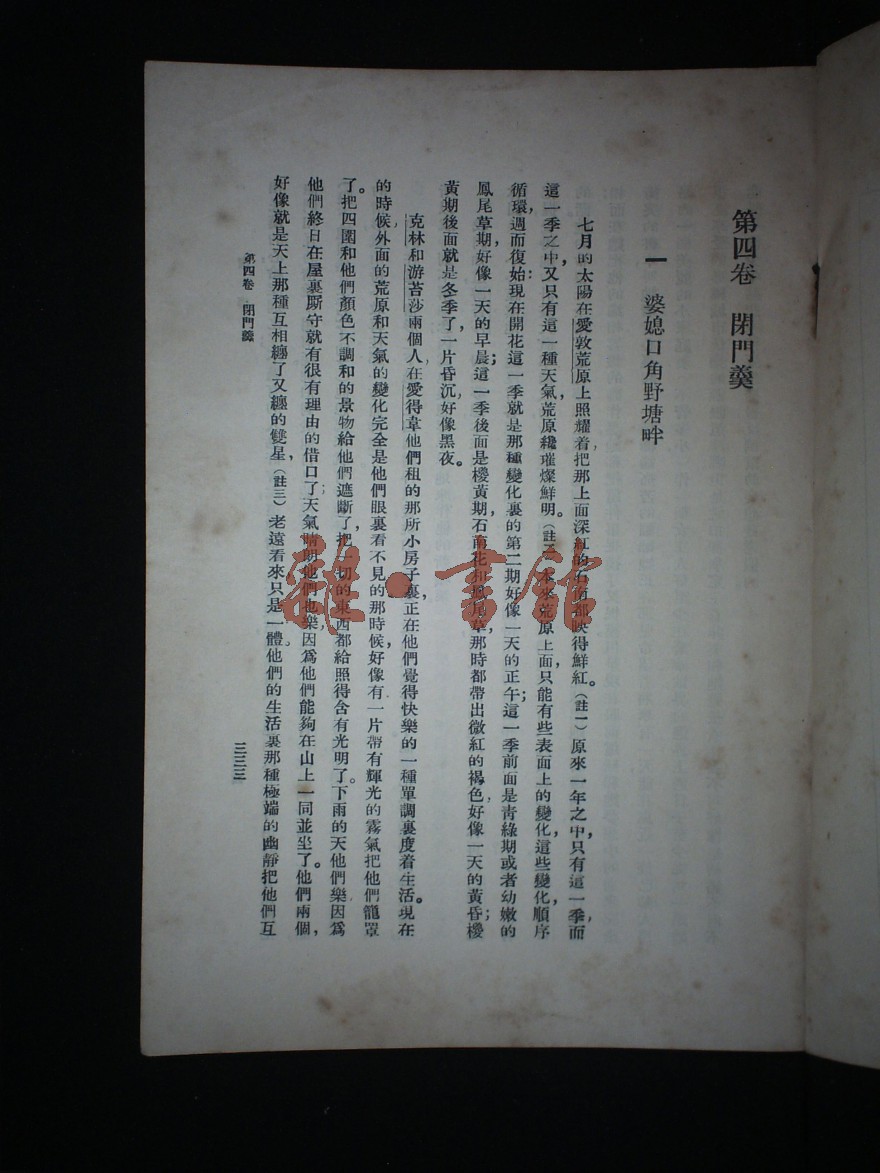 第四卷　閉門羹
一　婆媳口角野塘畔
七月的太陽在愛敦荒原上照耀着，把那上面深紅的石南都映得鮮紅。(註一)原來一年之中，只有這一季，而
這一季之中，又只有這一種天氣，荒原纔璀燦鮮明。(註二)本來荒原上面，只能有些表面上的變化，這些變化，順序
循環，週而復始：現在開花這一季，就是那種變化裏的第二期，好像一天的正午；這一季前面是青綠期或者幼嫩的
鳳尾草期，好像一天的早晨；這一季後面是椶黃期，石南花和鳳尾草，那時都帶出微紅的褐色，好像一天的黃昏；椶
黃期後面就是冬季了，一片昏沉，好像黑夜。
克林和游苔莎兩個人，在愛得韋他們租的那所小房子裏，正在他們覺得快樂的一種單調裏度着生活。現在
的時候，外面的荒原和天氣的變化，完全是他們眼裏看不見的。那時候，好像有一片帶有輝光的霧氣，把他們籠罩
了。把四圍和他們顏色不調和的景物給他們遮斷了，把一切的東西都給照得含有光明了。下雨的天，他們樂，因爲
他們終日在屋裏廝守，就有很有理由的借口了；天氣晴朗，他們也樂，因爲他們能夠在山上一同並坐了。他們兩個，
好像就是天上那種互相纏了又纏的雙星，(註三)老遠看來，只是一體。他們的生活裏那種極端的幽靜，把他們互
第四卷　閉門羹
三三三
雜·書館